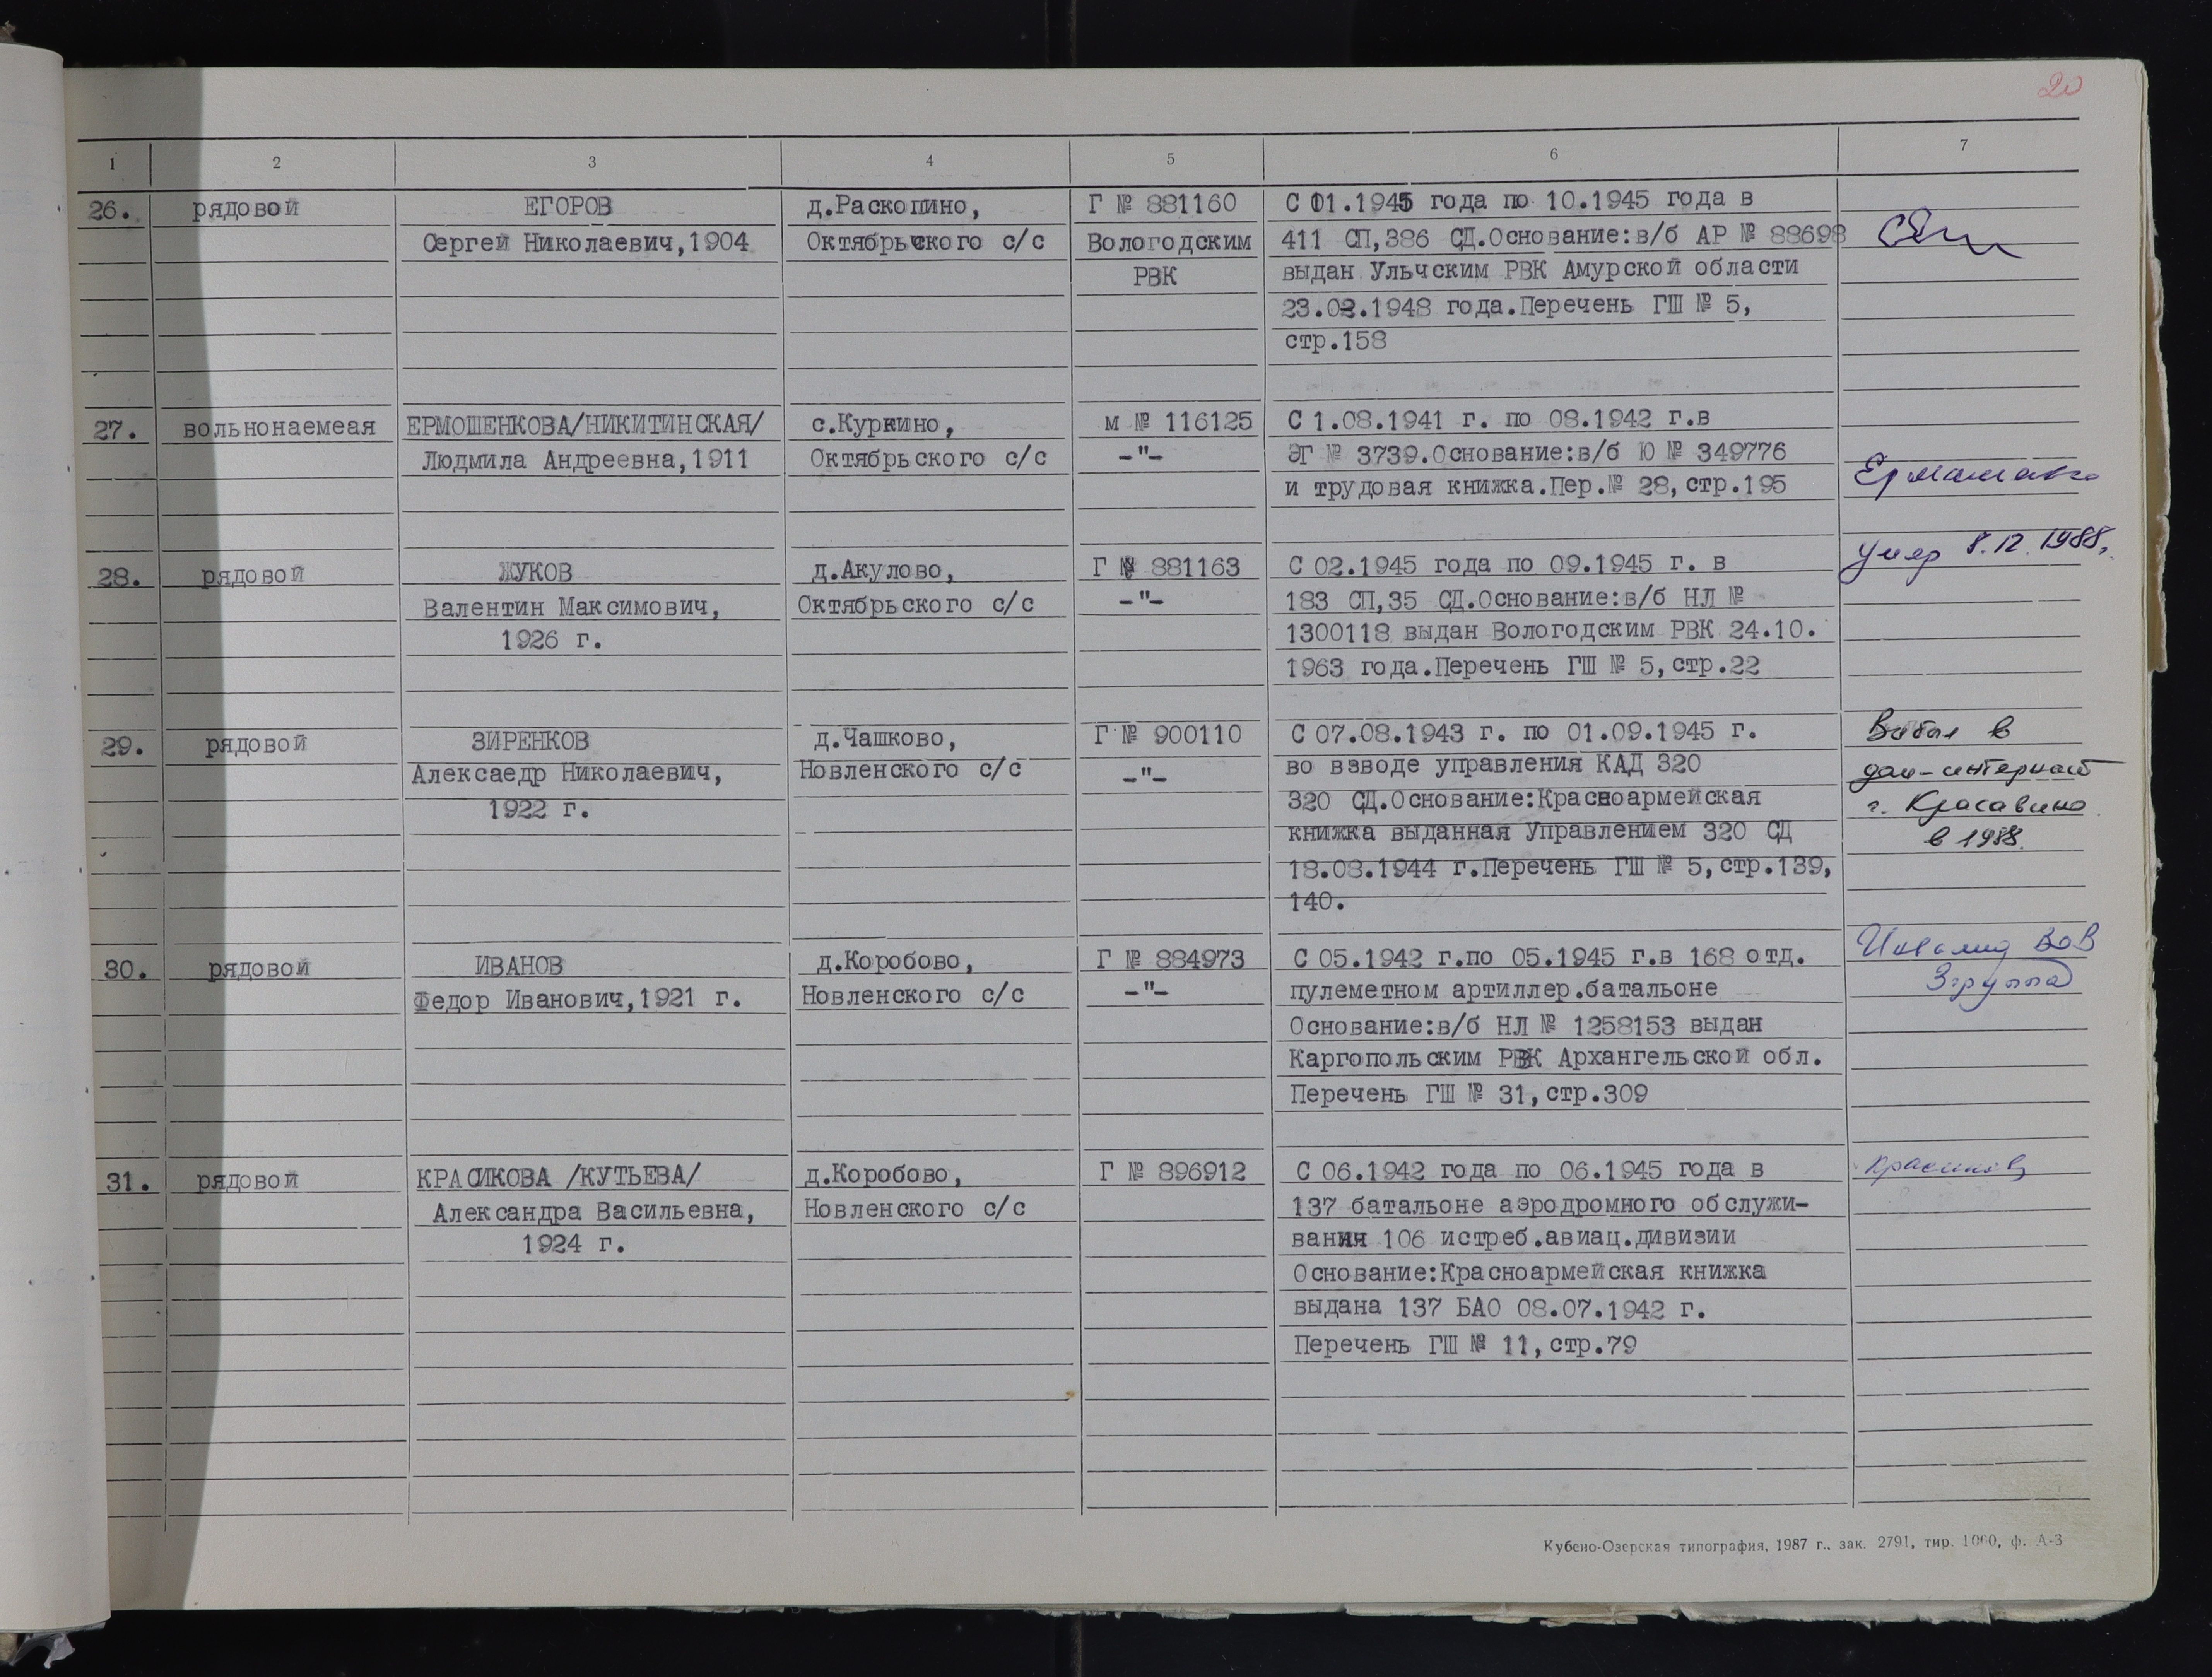 20
1 2 3 4 5 6 7
26. рядовой ЕГОРОВ д.Раскопино, Г № 881160 С 01.1945 года по 10.1945 года в
Сергей Николаевич,1904 Октябрьского с/с Вологодским 411 СП,386 СД.Основание:в/б АР № 88698
РВК выдан Ульчским РВК Амурской области
23.02.1948 года.Перечень ГШ № 5,
стр.158
27. вольнонаемеая ЕРМОШЕНКОВА/НИКИТИНСКАЯ/ с.Куркино, м № 116125 С 1.08.1941 г. по 08.1942 г.в
Людмила Андреевна,1911 Октябрьского с/с -"- ЭГ № 3739.Основание:в/б Ю № 349776
и трудовая книжка.Пер.№ 28,стр.195
умер 8.12.1988г.
28. рядовой ЖУКОВ д.Акулово, Г № 881163 С 02.1945 года по 09.1945 г. в
Валентин Максимович, Октябрьского с/с -"- 183 СП,35 СД.Основание:в/б НЛ №
1926 г. 1300118 выдан Вологодским РВК 24.10.
1963 года.Перечень ГШ № 5,стр.22
29. рядовой ЗИРЕНКОВ д.Чашково, Г № 900110 С 07.08.1943 г. по 01.09.1945 г. Выбыл в
Алексаедр Николаевич, Новленского с/с -"- во взводе управления КАД 320 дом-интернат
1922 г. 320 СД.Основание:Красноармейская г. Красавино
книжка выданная Управлением 320 СД в 1988.
18.08.1944 г.Перечень ГШ № 5,стр.139,
140.
30. рядовой ИВАНОВ д.Коробово, Г № 884973 С 05.1942 г.по 05.1945 г.в 168 отд. Инвалид ВОВ
Федор Иванович,1921 г. Новленского с/с -"- пулеметном артиллер.батальоне 3группа
Основание:в/б НЛ № 1258153 выдан
Каргопольским РВК Архангельской обл.
Перечень ГШ № 31,стр.309
31. рядовой КРАСИКОВА /КУТЬЕВА/ д.Коробово, Г № 896912 С 06.1942 года по 06.1945 года в
Александра Васильевна, Новленского с/с 137 батальоне аэродромного обслужи-
1924 г. вания 106 истреб.авиац.дивизии
Основание:Красноармейская книжка
выдана 137 БАО 08.07.1942 г.
Перечень ГШ № 11,стр.79
Кубено-Озерская типография, 1987 г., зак. 2791, тир. 1000, ф. А-3